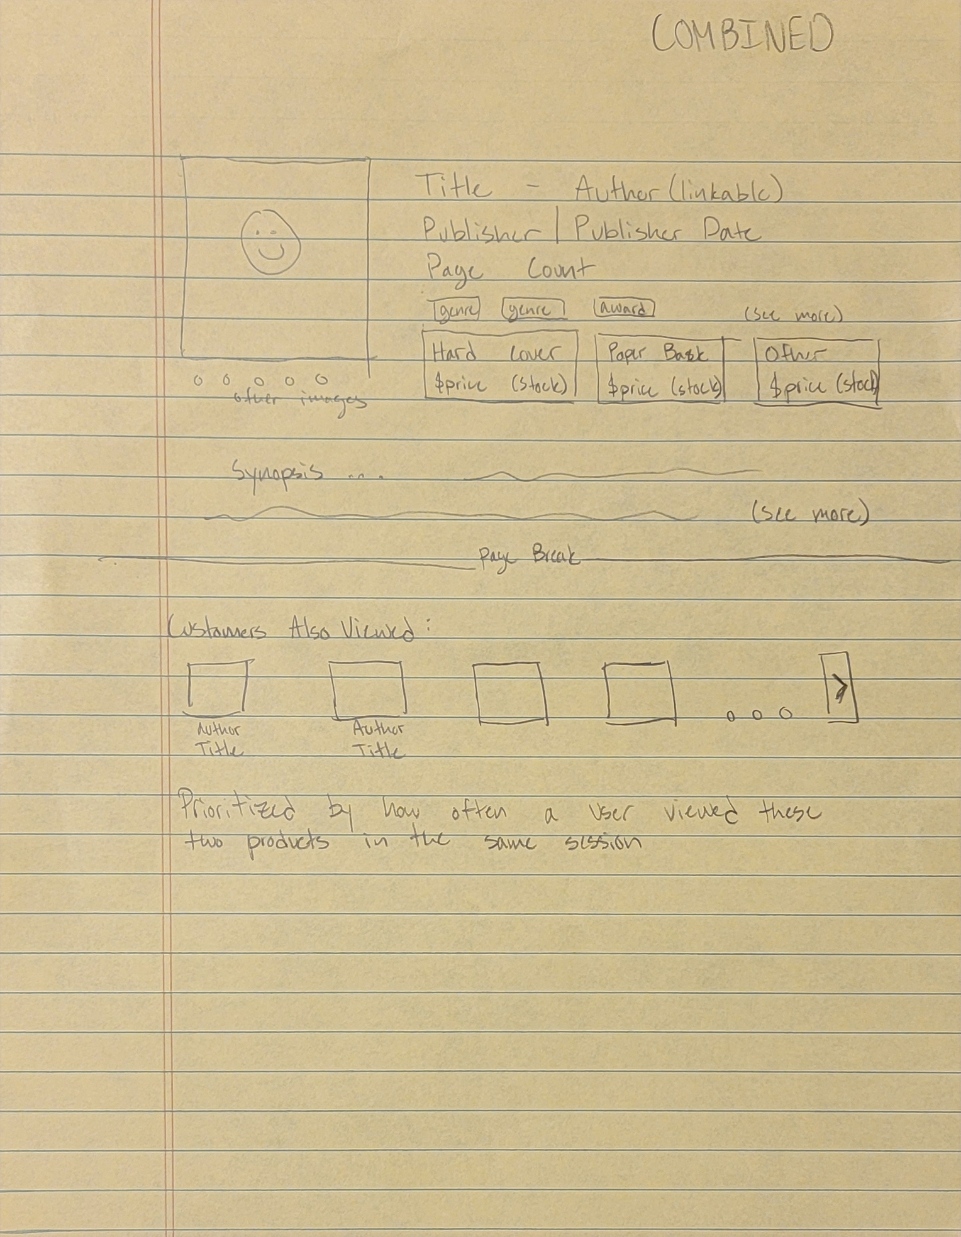 COMBINED
Title - Author (linkable)
Publisher | Publisher Date
Page Count
genre genre award (see more)
Hard Cover Paper Back Other
$price (stock) $price (stock) $price (stock)
other images
Synopsis ...
(see more)
Page Break
Customers Also Viewed:
>
Author Author
Title Title
Prioritized by how often a user viewed these
two products in the same session